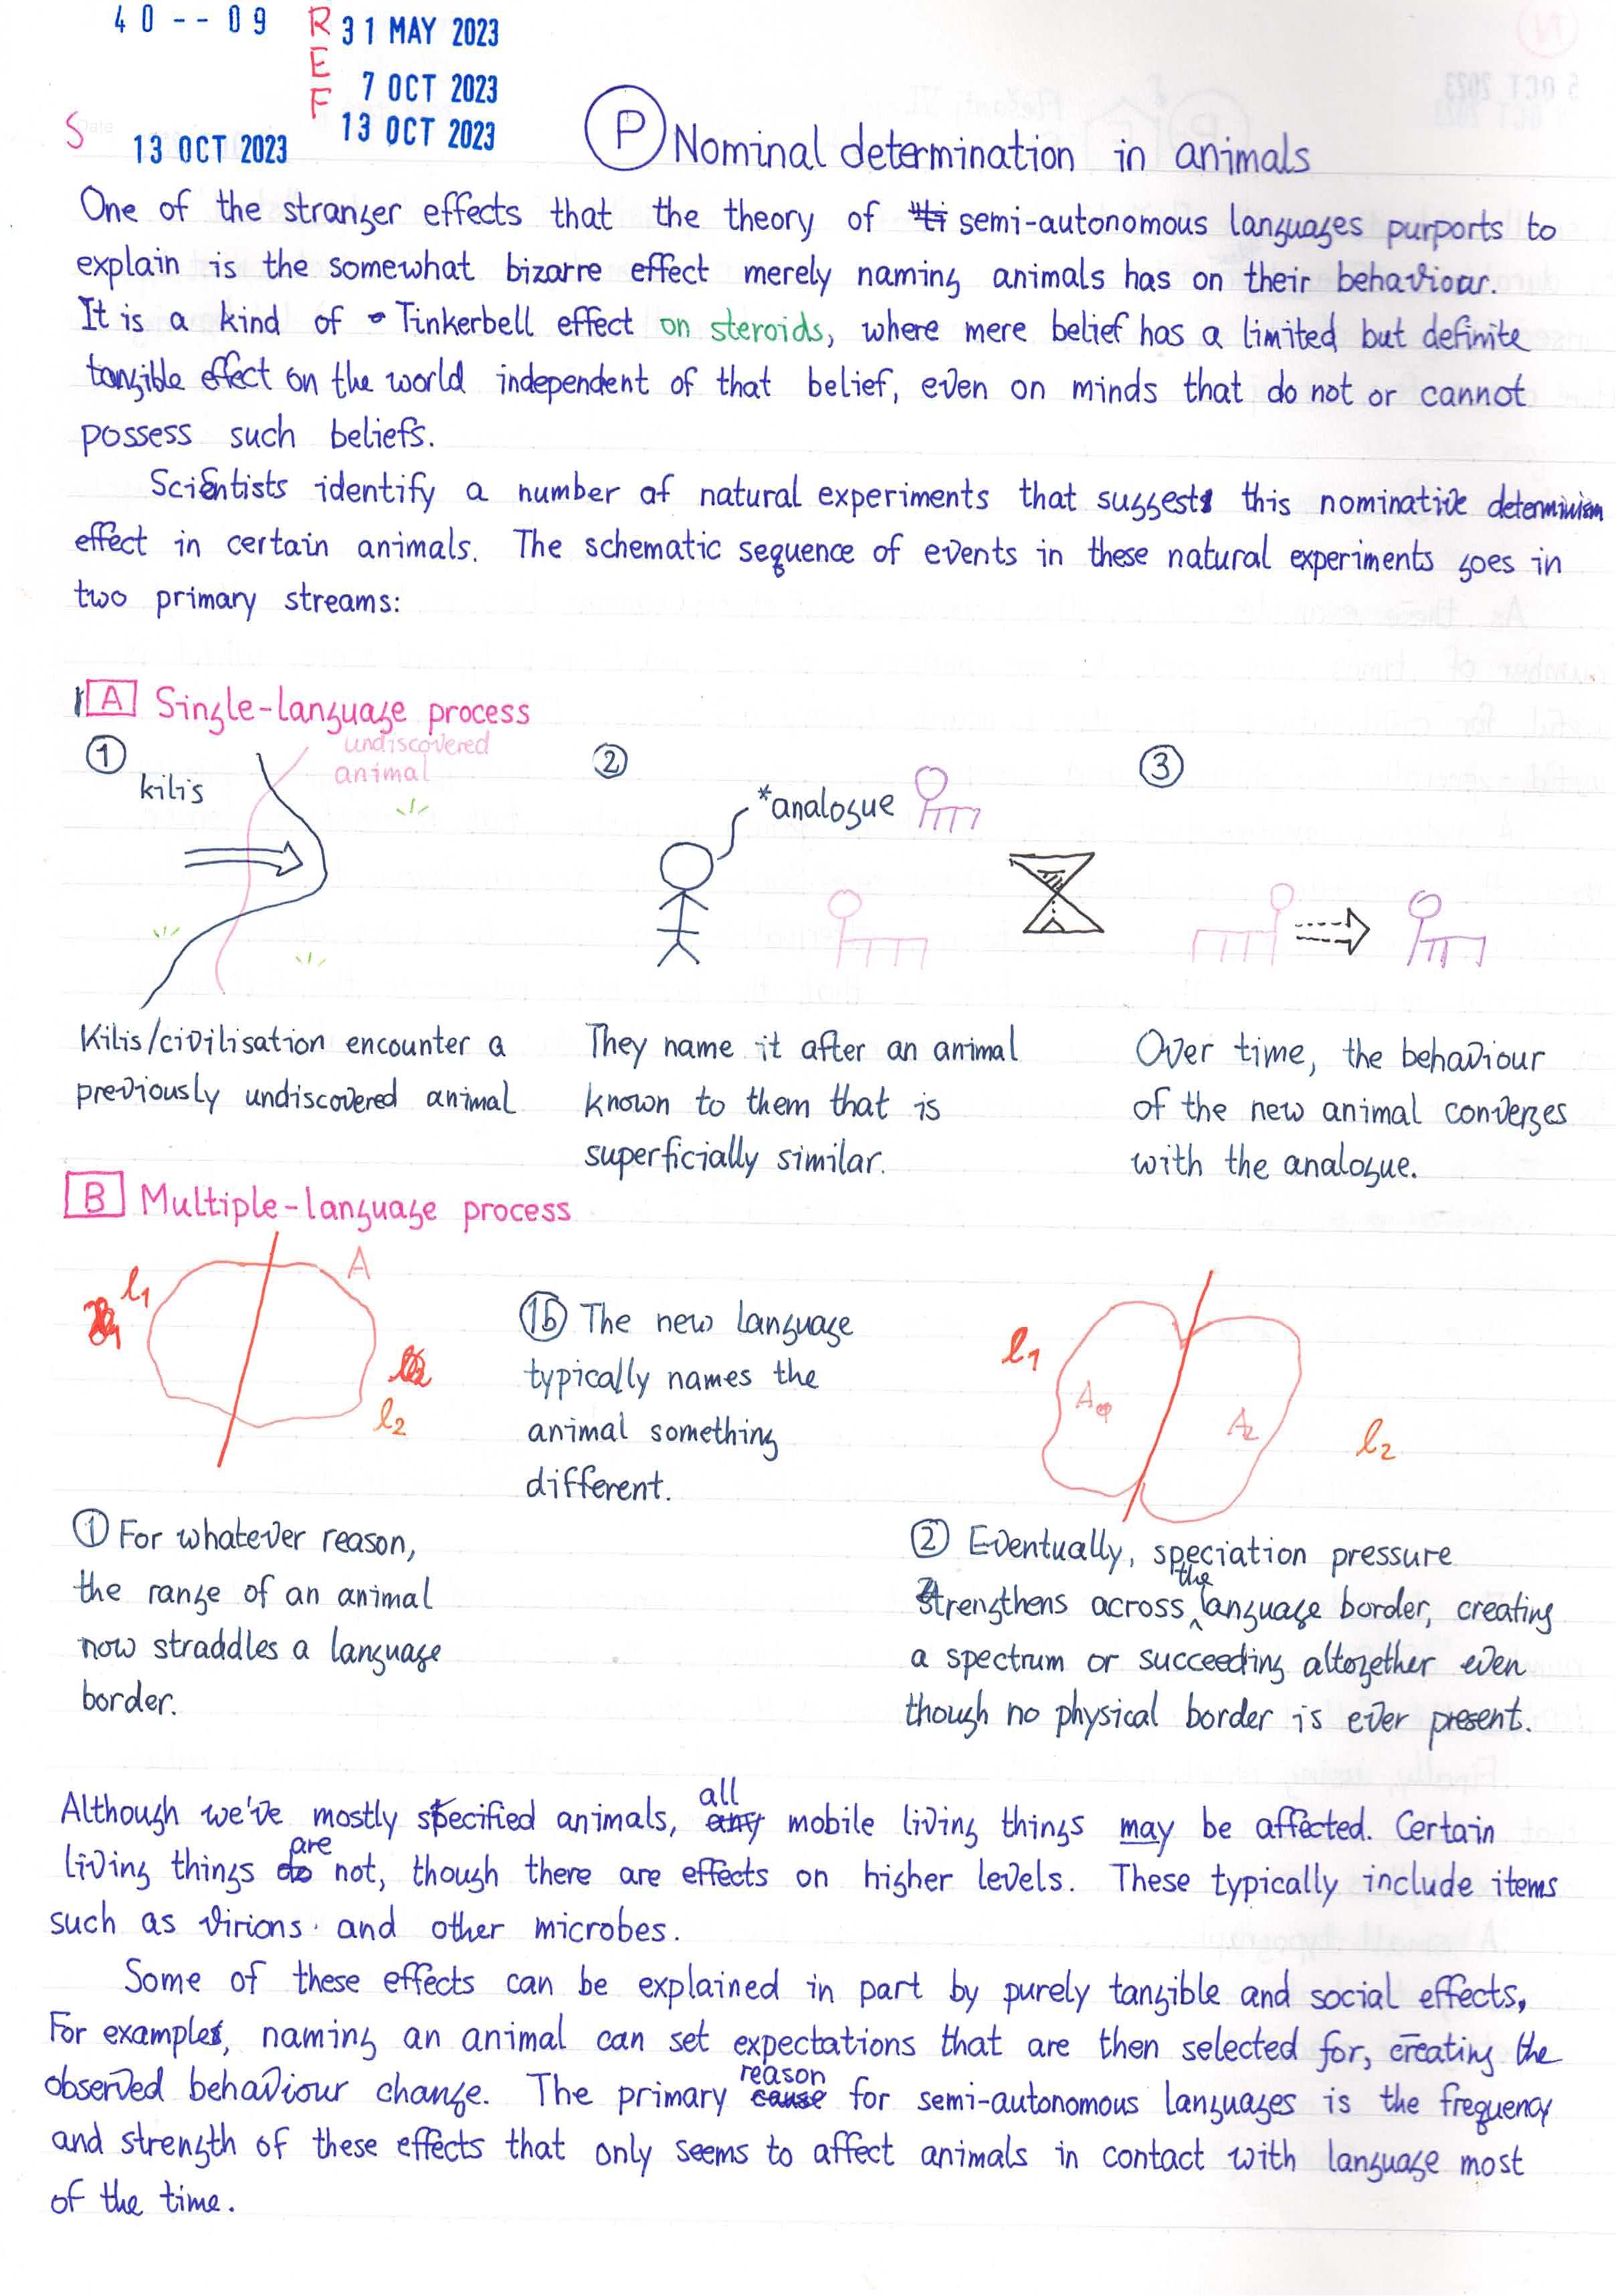 40--09
REF
31 MAY 2023
7 OCT 2023
13 OCT 2023
S
Date
13 OCT 2023
P Nominal determination in animals
One of the stranger effects that the theory of semi-autonomous languages purports to
explain is the somewhat bizarre effect merely naming animals has on their behaviour.
It is a kind of Tinkerbell effect on steroids, where mere belief has a limited but definite
tangible effect on the world independent of that belief, even on minds that do not or cannot
possess such beliefs.
Scientists identify a number of natural experiments that suggest this nominative determinism
effect in certain animals. The schematic sequence of events in these natural experiments goes in
two primary streams:
A Single-language process
1
kilis
undiscovered
animal
2
*analogue
3
Kilis/civilisation encounter a
previously undiscovered animal
They name it after an animal
known to them that is
superficially similar.
Over time, the behaviour
of the new animal converges
with the analogue.
B Multiple-language process
l1
A
l2
1b The new language
typically names the
animal something
different.
l1
A
A2
l2
1 For whatever reason,
the range of an animal
now straddles a language
border.
2 Eventually, speciation pressure
strengthens across the language border, creating
a spectrum or succeeding altogether even
though no physical border is ever present.
Although we've mostly specified animals, all mobile living things may be affected. Certain
living things are not, though there are effects on higher levels. These typically include items
such as virions and other microbes.
Some of these effects can be explained in part by purely tangible and social effects,
For example, naming an animal can set expectations that are then selected for, creating the
observed behaviour change. The primary reason for semi-autonomous languages is the frequency
and strength of these effects that only seems to affect animals in contact with language most
of the time.